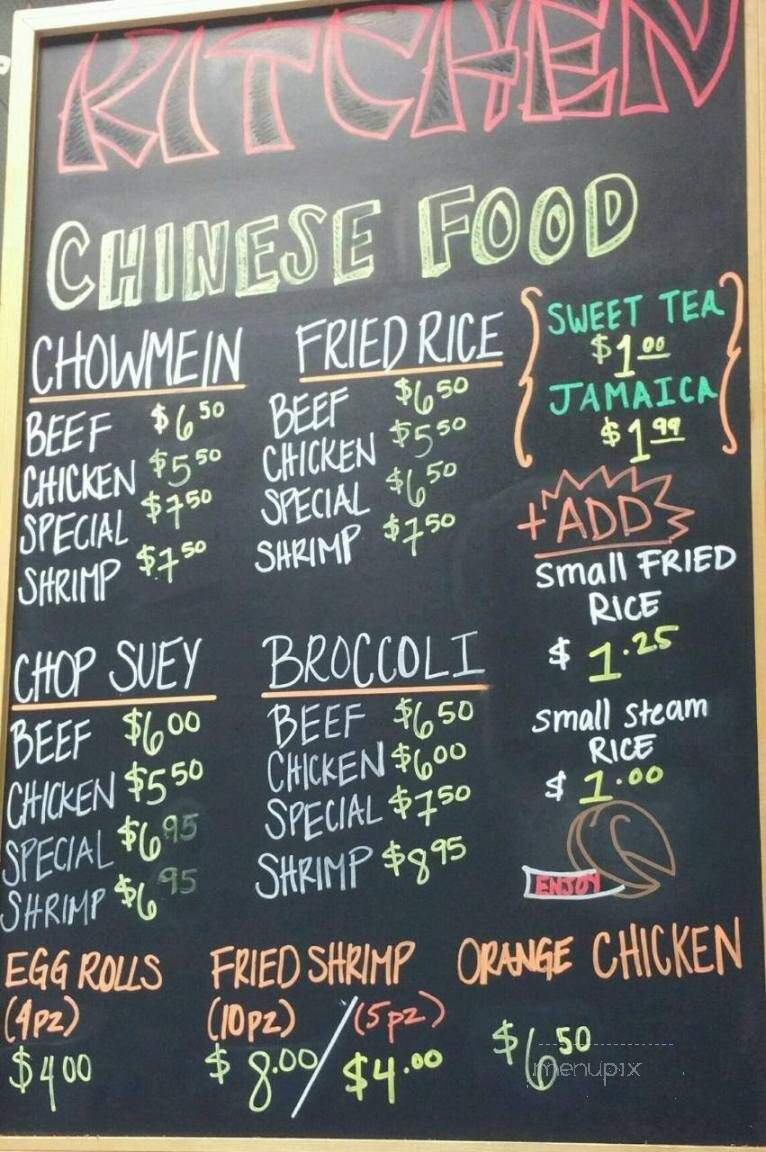 KITCHEN
CHINESE FOOD
CHOWMEIN
BEEF $6.50
CHICKEN $5.50
SPECIAL $7.50
SHRIMP $7.50
FRIED RICE
BEEF $6.50
CHICKEN $5.50
SPECIAL $6.50
SHRIMP $7.50
SWEET TEA
$1.00
JAMAICA
$1.99
+ADD
small FRIED
RICE
$1.25
small steam
RICE
$1.00
ENJOY
CHOP SUEY
BEEF $6.00
CHICKEN $5.50
SPECIAL $6.95
SHRIMP $6.95
BROCCOLI
BEEF $6.50
CHICKEN $6.00
SPECIAL $7.50
SHRIMP $8.95
EGG ROLLS
(4pz)
$4.00
FRIED SHRIMP
(10pz) / (5pz)
$8.00 / $4.00
ORANGE CHICKEN
$6.50
menupix